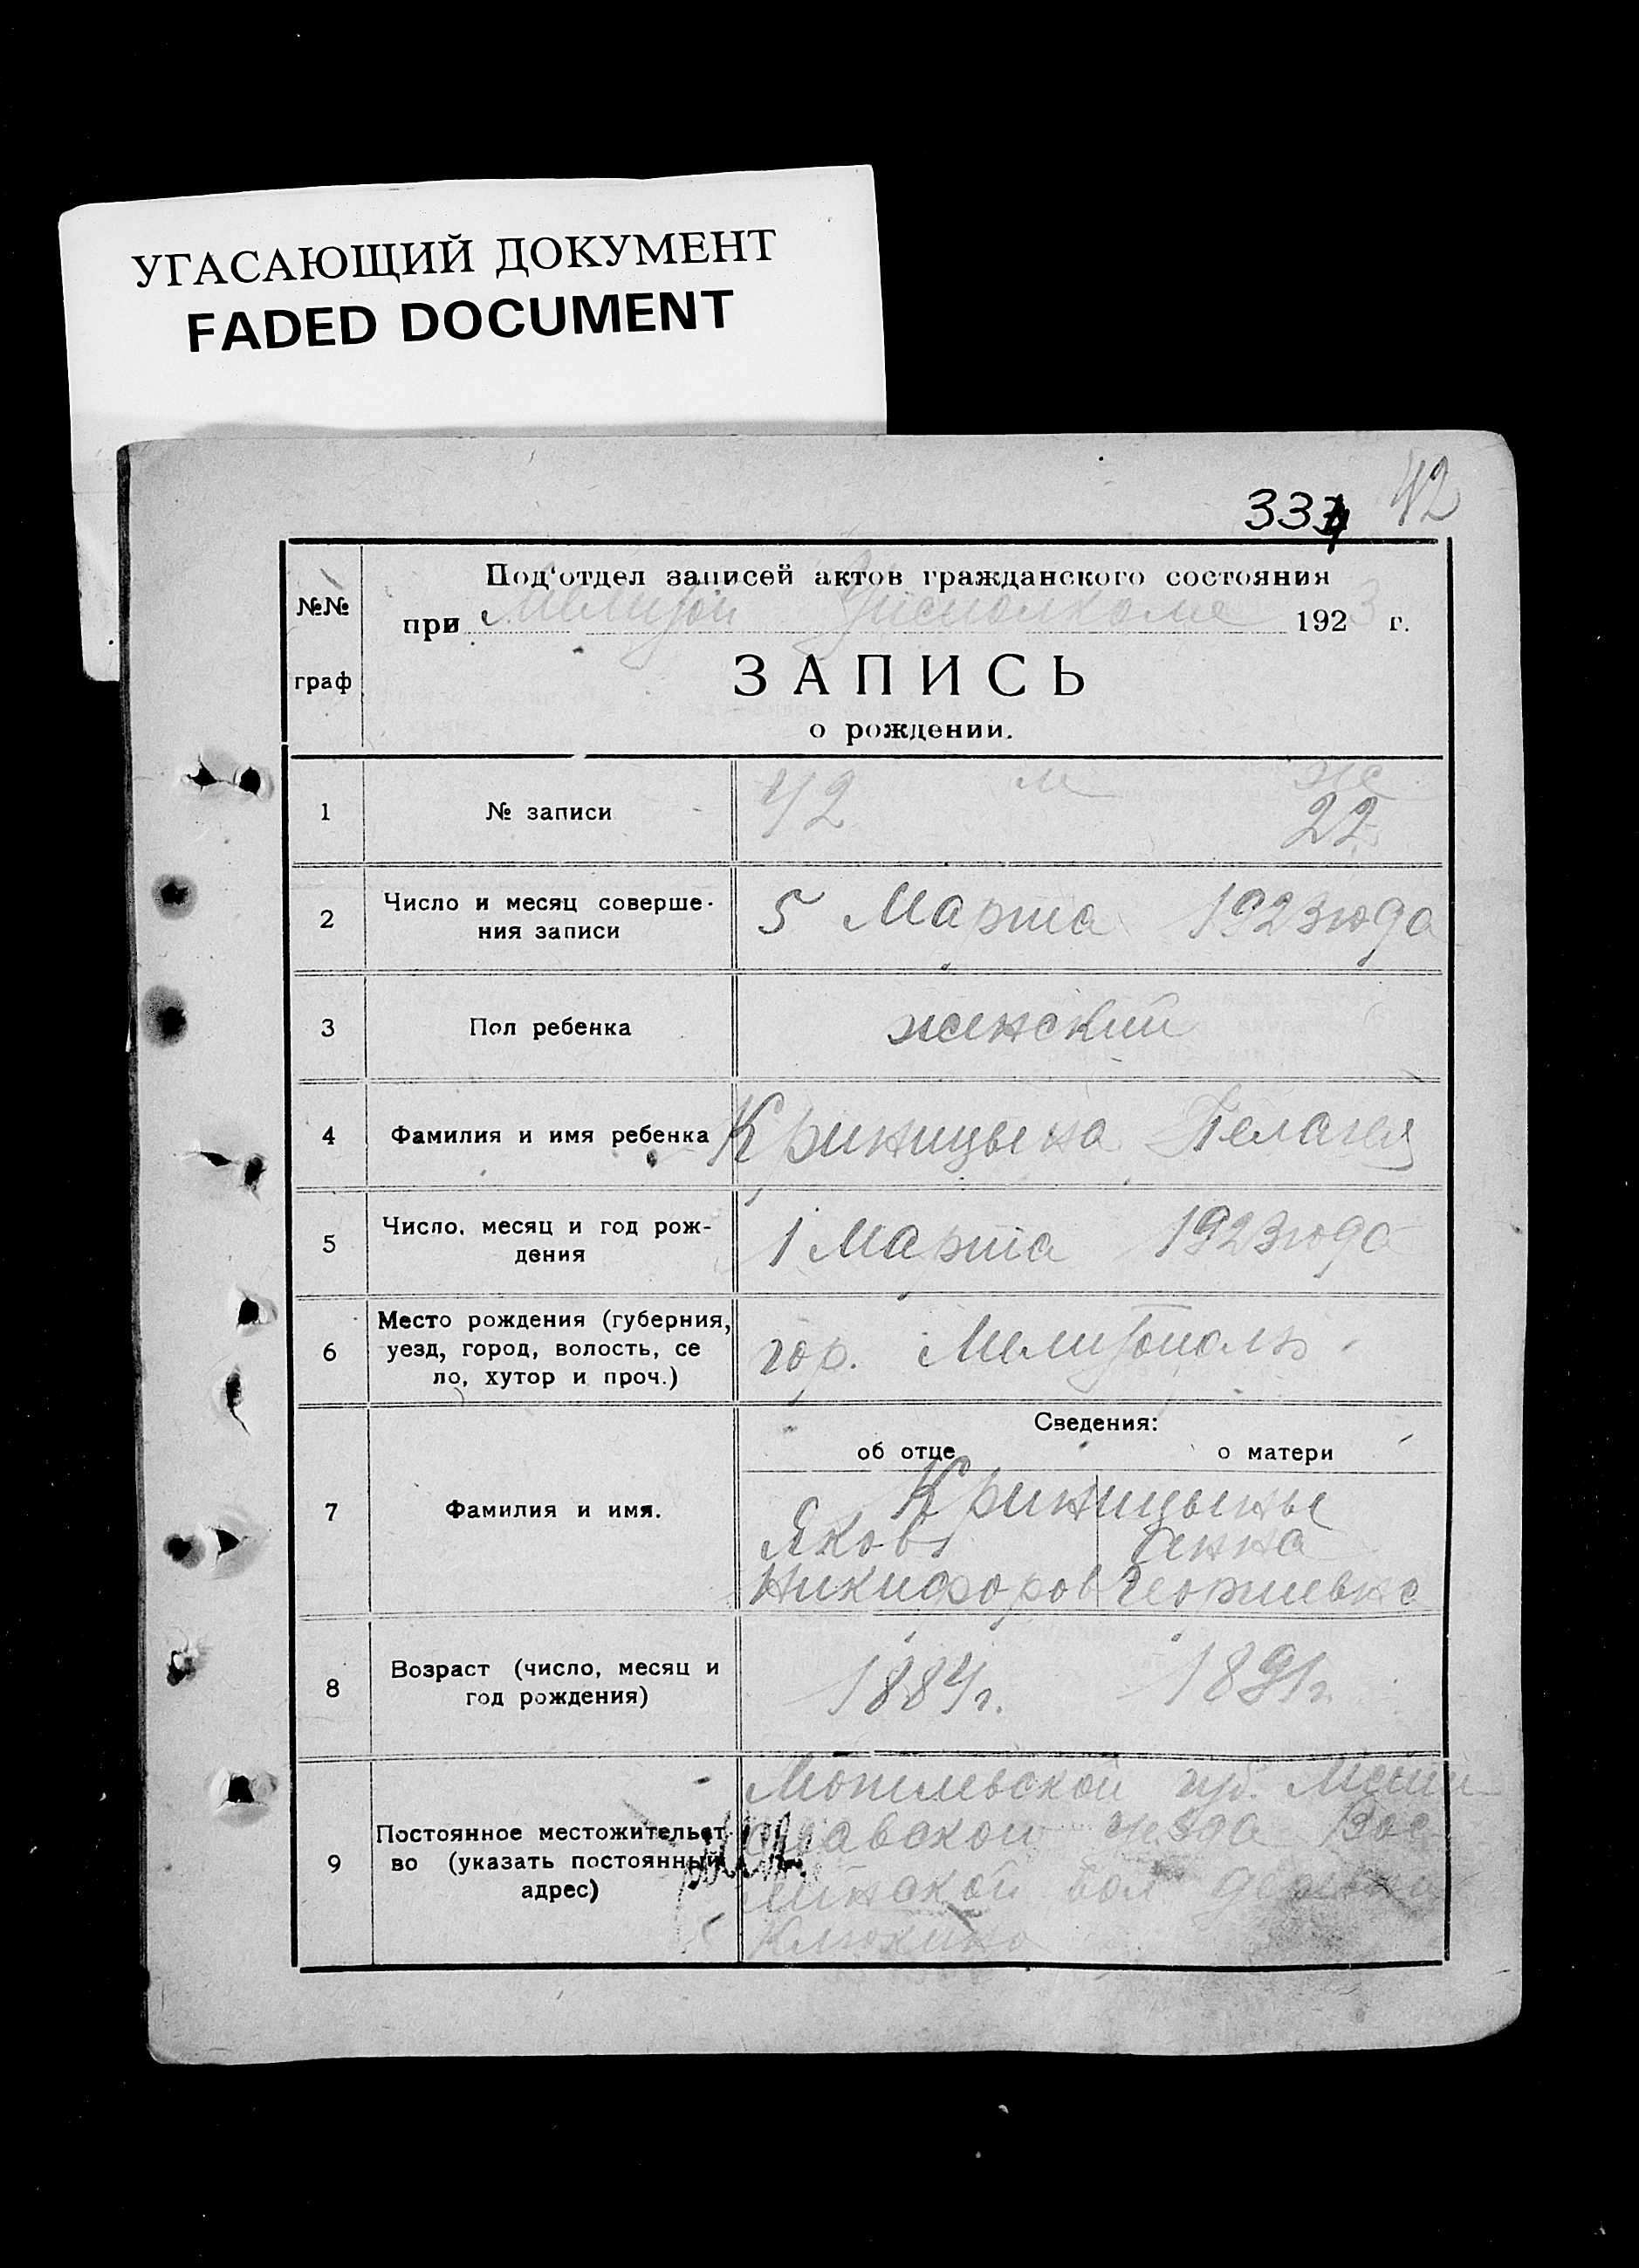 УГАСАЮЩИЙ ДОКУМЕНТ
FADED DOCUMENT
334 42
№№ граф
Под'отдел записей актов гражданского состояния
при Мелитоп Уисполкоме 1923 г.
ЗАПИСЬ
о рождении.
1 № записи 42 м же
22
2 Число и месяц соверше-
ния записи 5 Марта 1923 года
3 Пол ребенка женский
4 Фамилия и имя ребенка Криницына Пелагея
5 Число, месяц и год рож-
дения 1 Марта 1923 года
6 Место рождения (губерния,
уезд, город, волость, се
ло, хутор и проч.) гор. Мелитополь
Сведения:
об отце о матери
7 Фамилия и имя. Криницыны
Яковъ Анна
Никифоров Георгиевна
8 Возраст (число, месяц и
год рождения) 1884 г. 1891 г.
9 Постоянное местожительст
во (указать постоянный
адрес) Могилевской губ. Мсти
славской уезда
вол
Клюкино